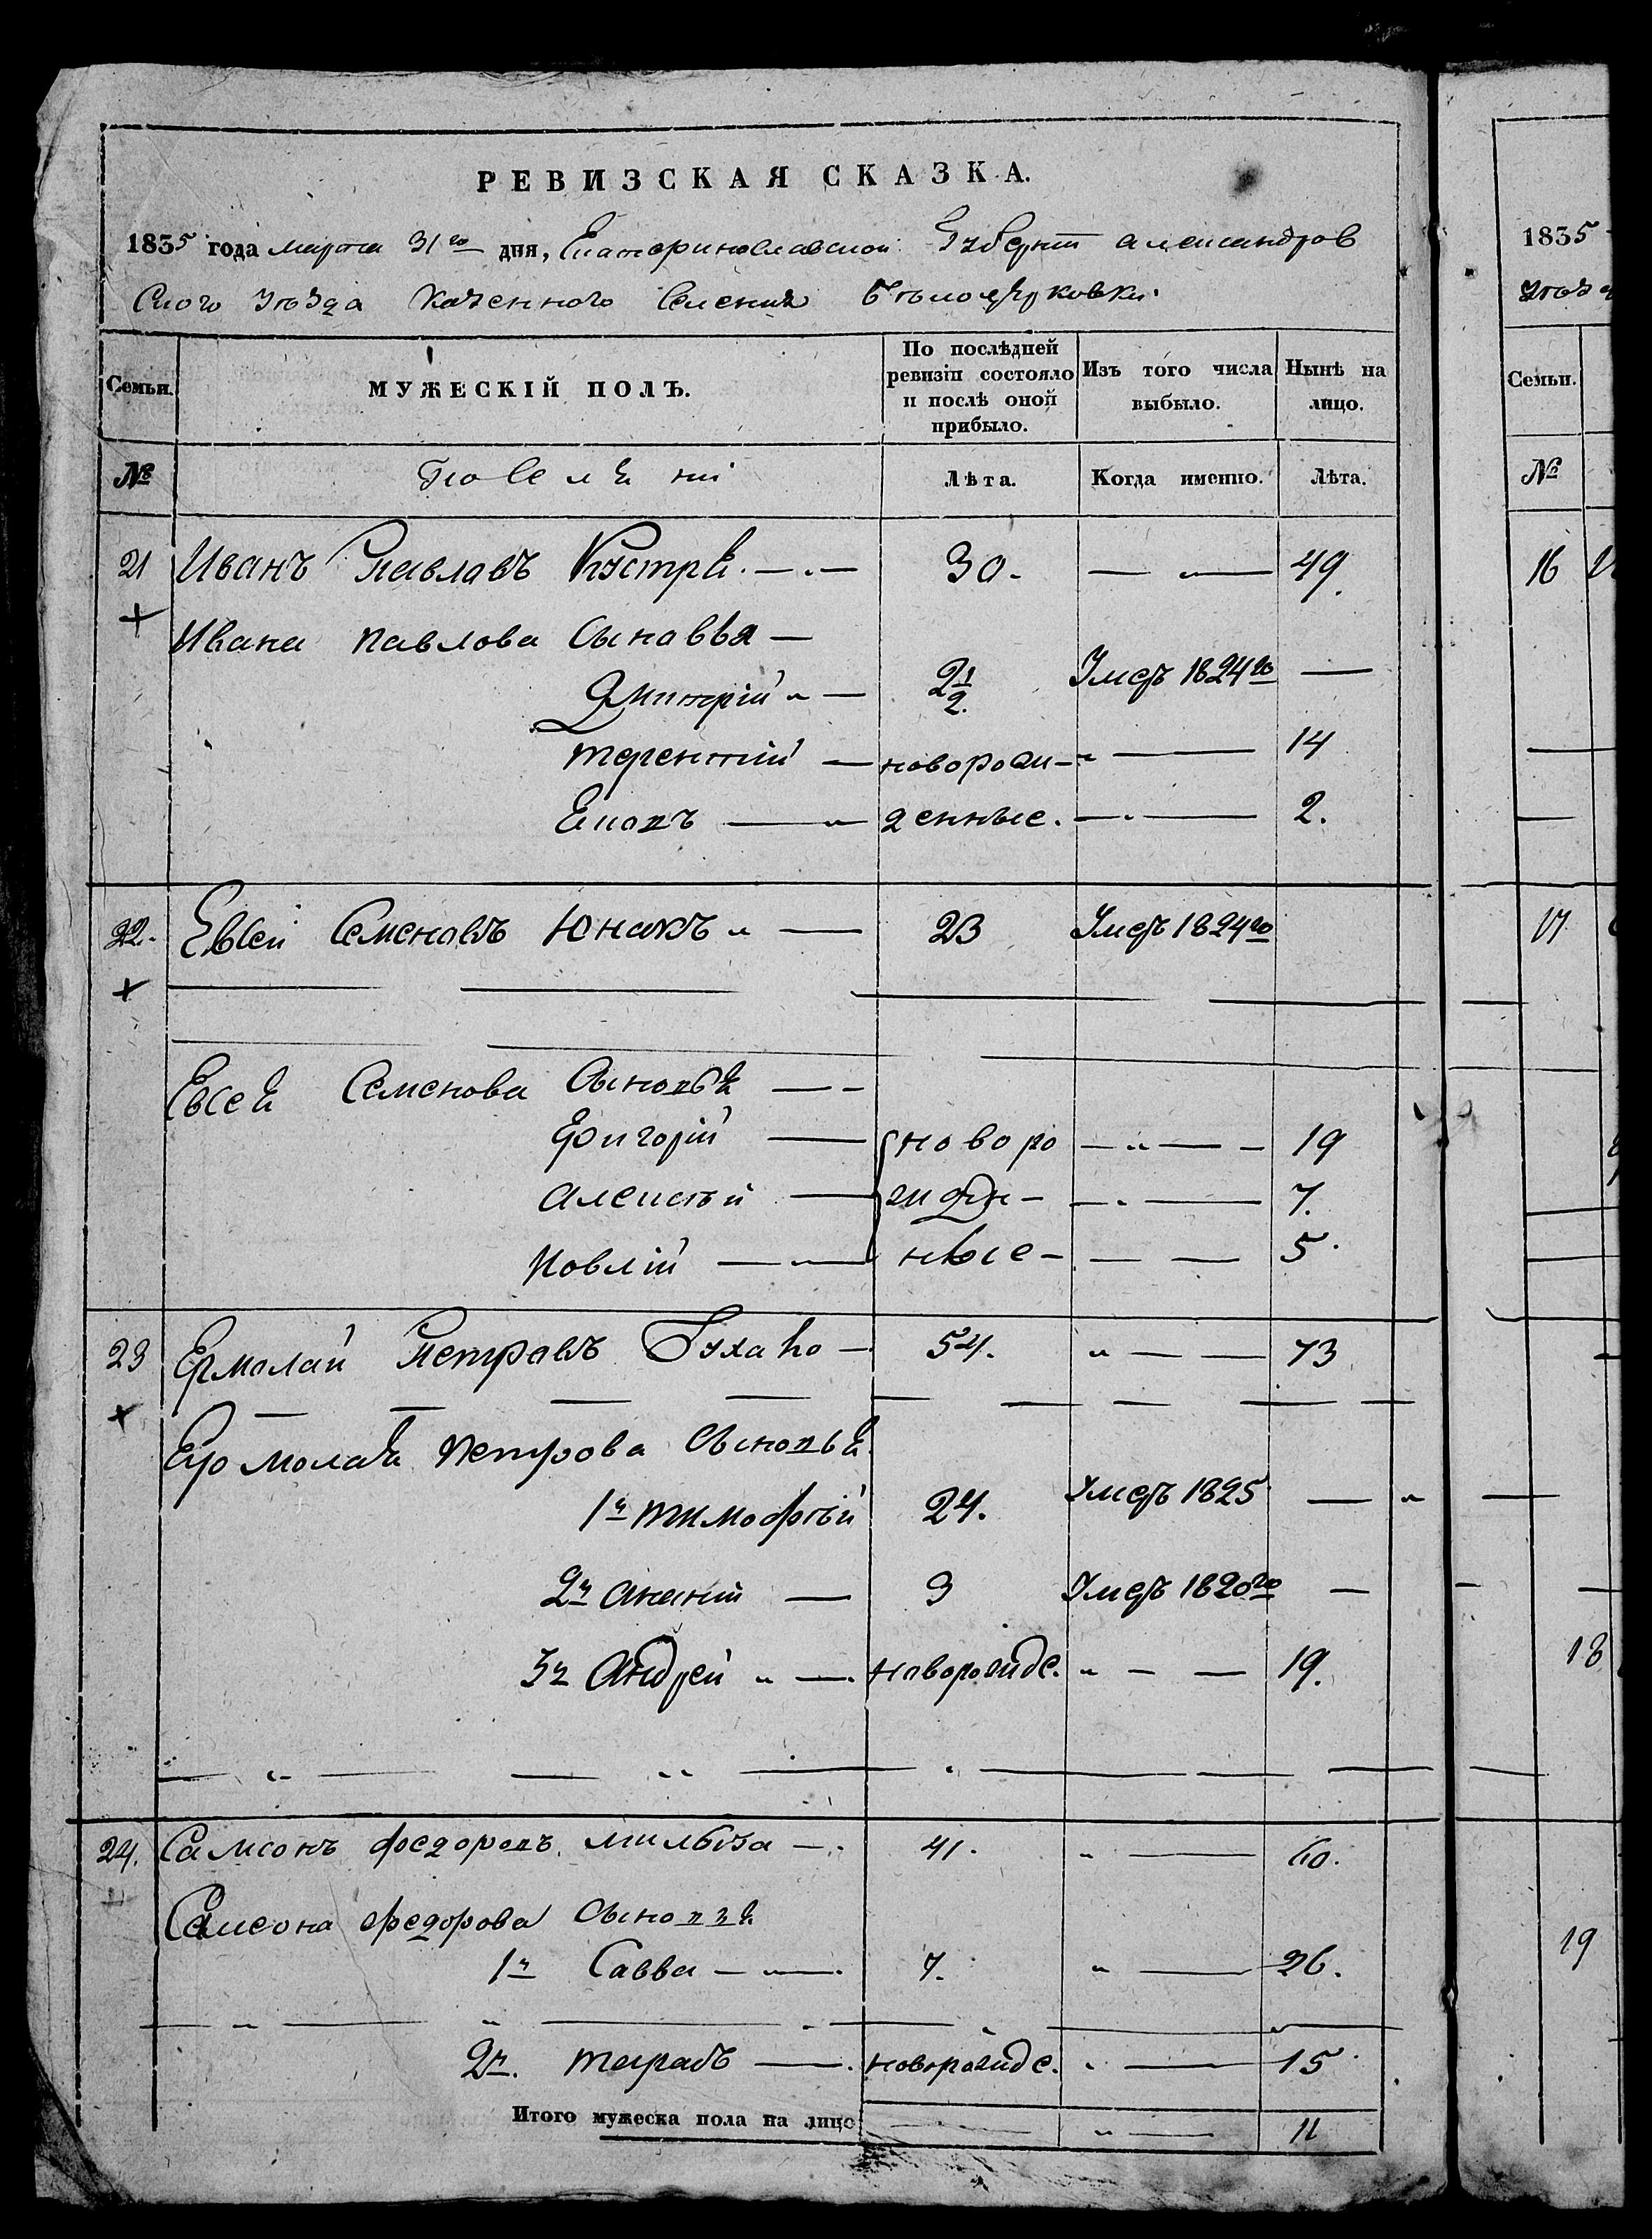 РЕВИЗСКАЯ СКАЗКА.
1835 года марта 31го дня, Екатеринославской Губернiи александров
Ского уѣзда Казенного Селения Бѣлоцерковки.
Семьи. МУЖЕСКІЙ ПОЛЪ. По послѣдней ревизіи состояло и послѣ оной прибыло. Изъ того числа выбыло. Нынѣ на лицо.
№ Поселяні Лѣта. Когда именно. Лѣта.
21 Иванъ Павлавъ 30. 49.
Ивана Павлова Сынавья
Дмитрій 2 1/2 Умеръ 1824го
терентій новорож- 14
денные. 2.
22. Евсей Семеновъ Юнакъ 23 Умеръ 1824го
Евсея Семенова Сыновья
Григорій новоро 19
алексѣй жден- 7.
Иовлій ные- 5.
23 Ермолай Петровъ 54. 73
Ермолая Петрова Сыновья
1й тимофѣй 24. Умеръ 1825
2й ананій 3 Умеръ 1820го
3й Андрей новорожде. 19.
24. Самсонъ федоровъ 41. 60.
Самсона федорова Сыновья
1й Савва 7. 26.
2й новорожде. 15
Итого мужеска пола на лицо 11
1835
Семьи.
№
16
17
18
19